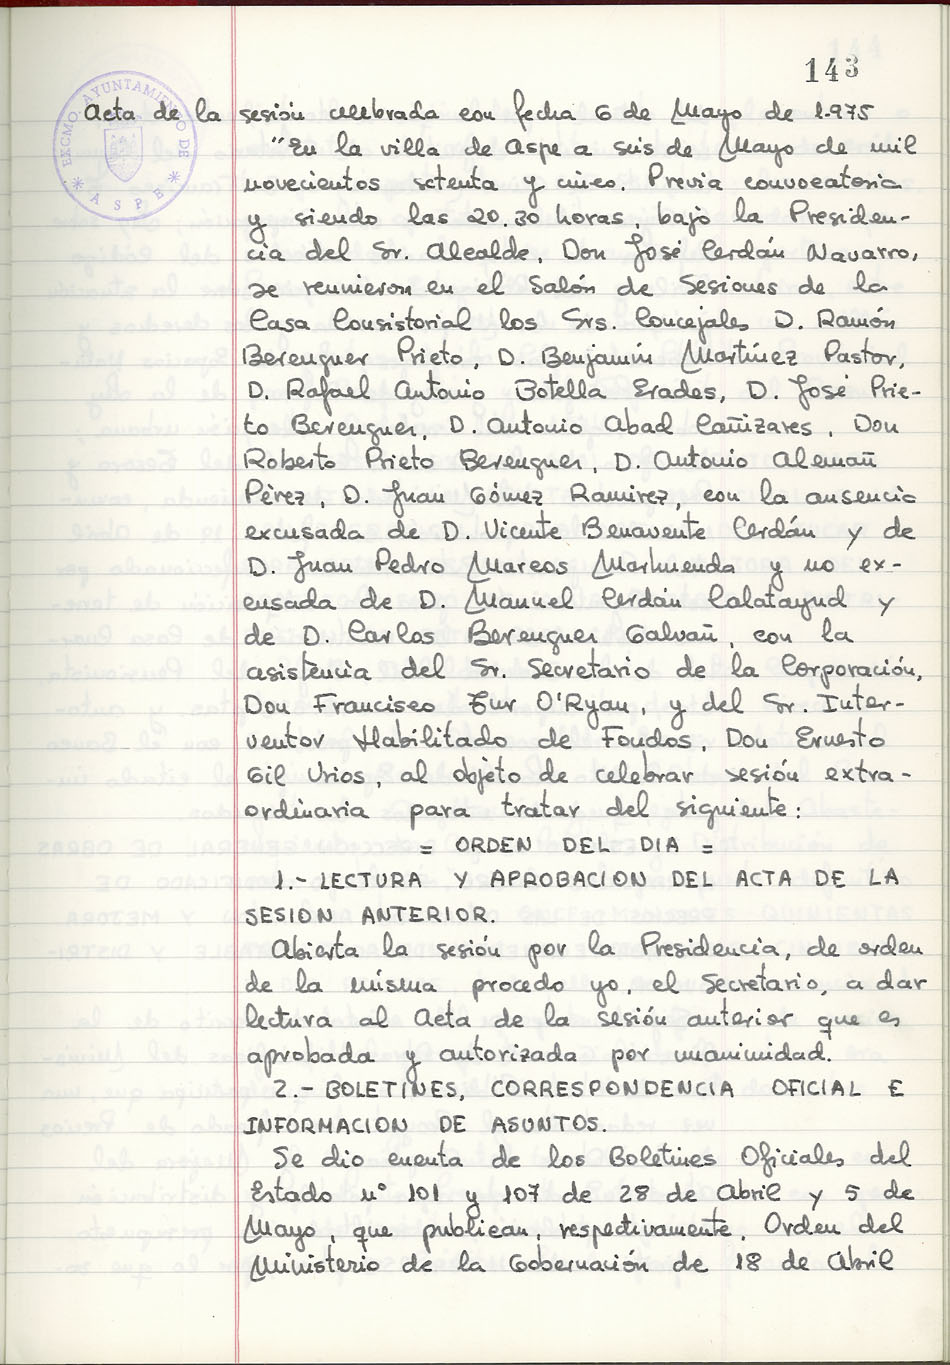 143
EXCMO. AYUNTAMIENTO DE
* ASPE *
Acta de la sesión celebrada con fecha 6 de Mayo de 1.975
"En la villa de Aspe a seis de Mayo de mil
novecientos setenta y cinco. Previa convocatoria
y siendo las 20,30 horas, bajo la Presiden-
cia del Sr. Alcalde, Don José Cerdán Navarro,
se reunieron en el Salón de Sesiones de la
Casa Consistorial los Srs. Concejales D. Ramón
Berenguer Prieto, D. Benjamín Martínez Pastor,
D. Rafael Antonio Botella Erades, D. José Prie-
to Berenguer, D. Antonio Abad Cañizares, Don
Roberto Prieto Berenguer, D. Antonio Alemañ
Pérez, D. Juan Gómez Ramirez, con la ausencia
excusada de D. Vicente Benavente Cerdán y de
D. Juan Pedro Marcos Marhuenda y no ex-
cusada de D. Manuel Cerdán Calatayud y
de D. Carlos Berenguer Galvañ, con la
asistencia del Sr. Secretario de la Corporación,
Don Francisco Tur O'Ryan, y del Sr. Inter-
ventor Habilitado de Fondos, Don Ernesto
Gil Urios, al objeto de celebrar sesión extra-
ordinaria para tratar del siguiente:
= ORDEN DEL DIA =
1.- LECTURA Y APROBACION DEL ACTA DE LA
SESION ANTERIOR.
Abierta la sesión por la Presidencia, de orden
de la misma procedo yo, el Secretario, a dar
lectura al Acta de la sesión anterior que es
aprobada y autorizada por unanimidad.
2.- BOLETINES, CORRESPONDENCIA OFICIAL E
INFORMACION DE ASUNTOS.
Se dio cuenta de los Boletines Oficiales del
Estado nº 101 y 107 de 28 de Abril y 5 de
Mayo, que publican, respectivamente, Orden del
Ministerio de la Gobernación de 18 de Abril